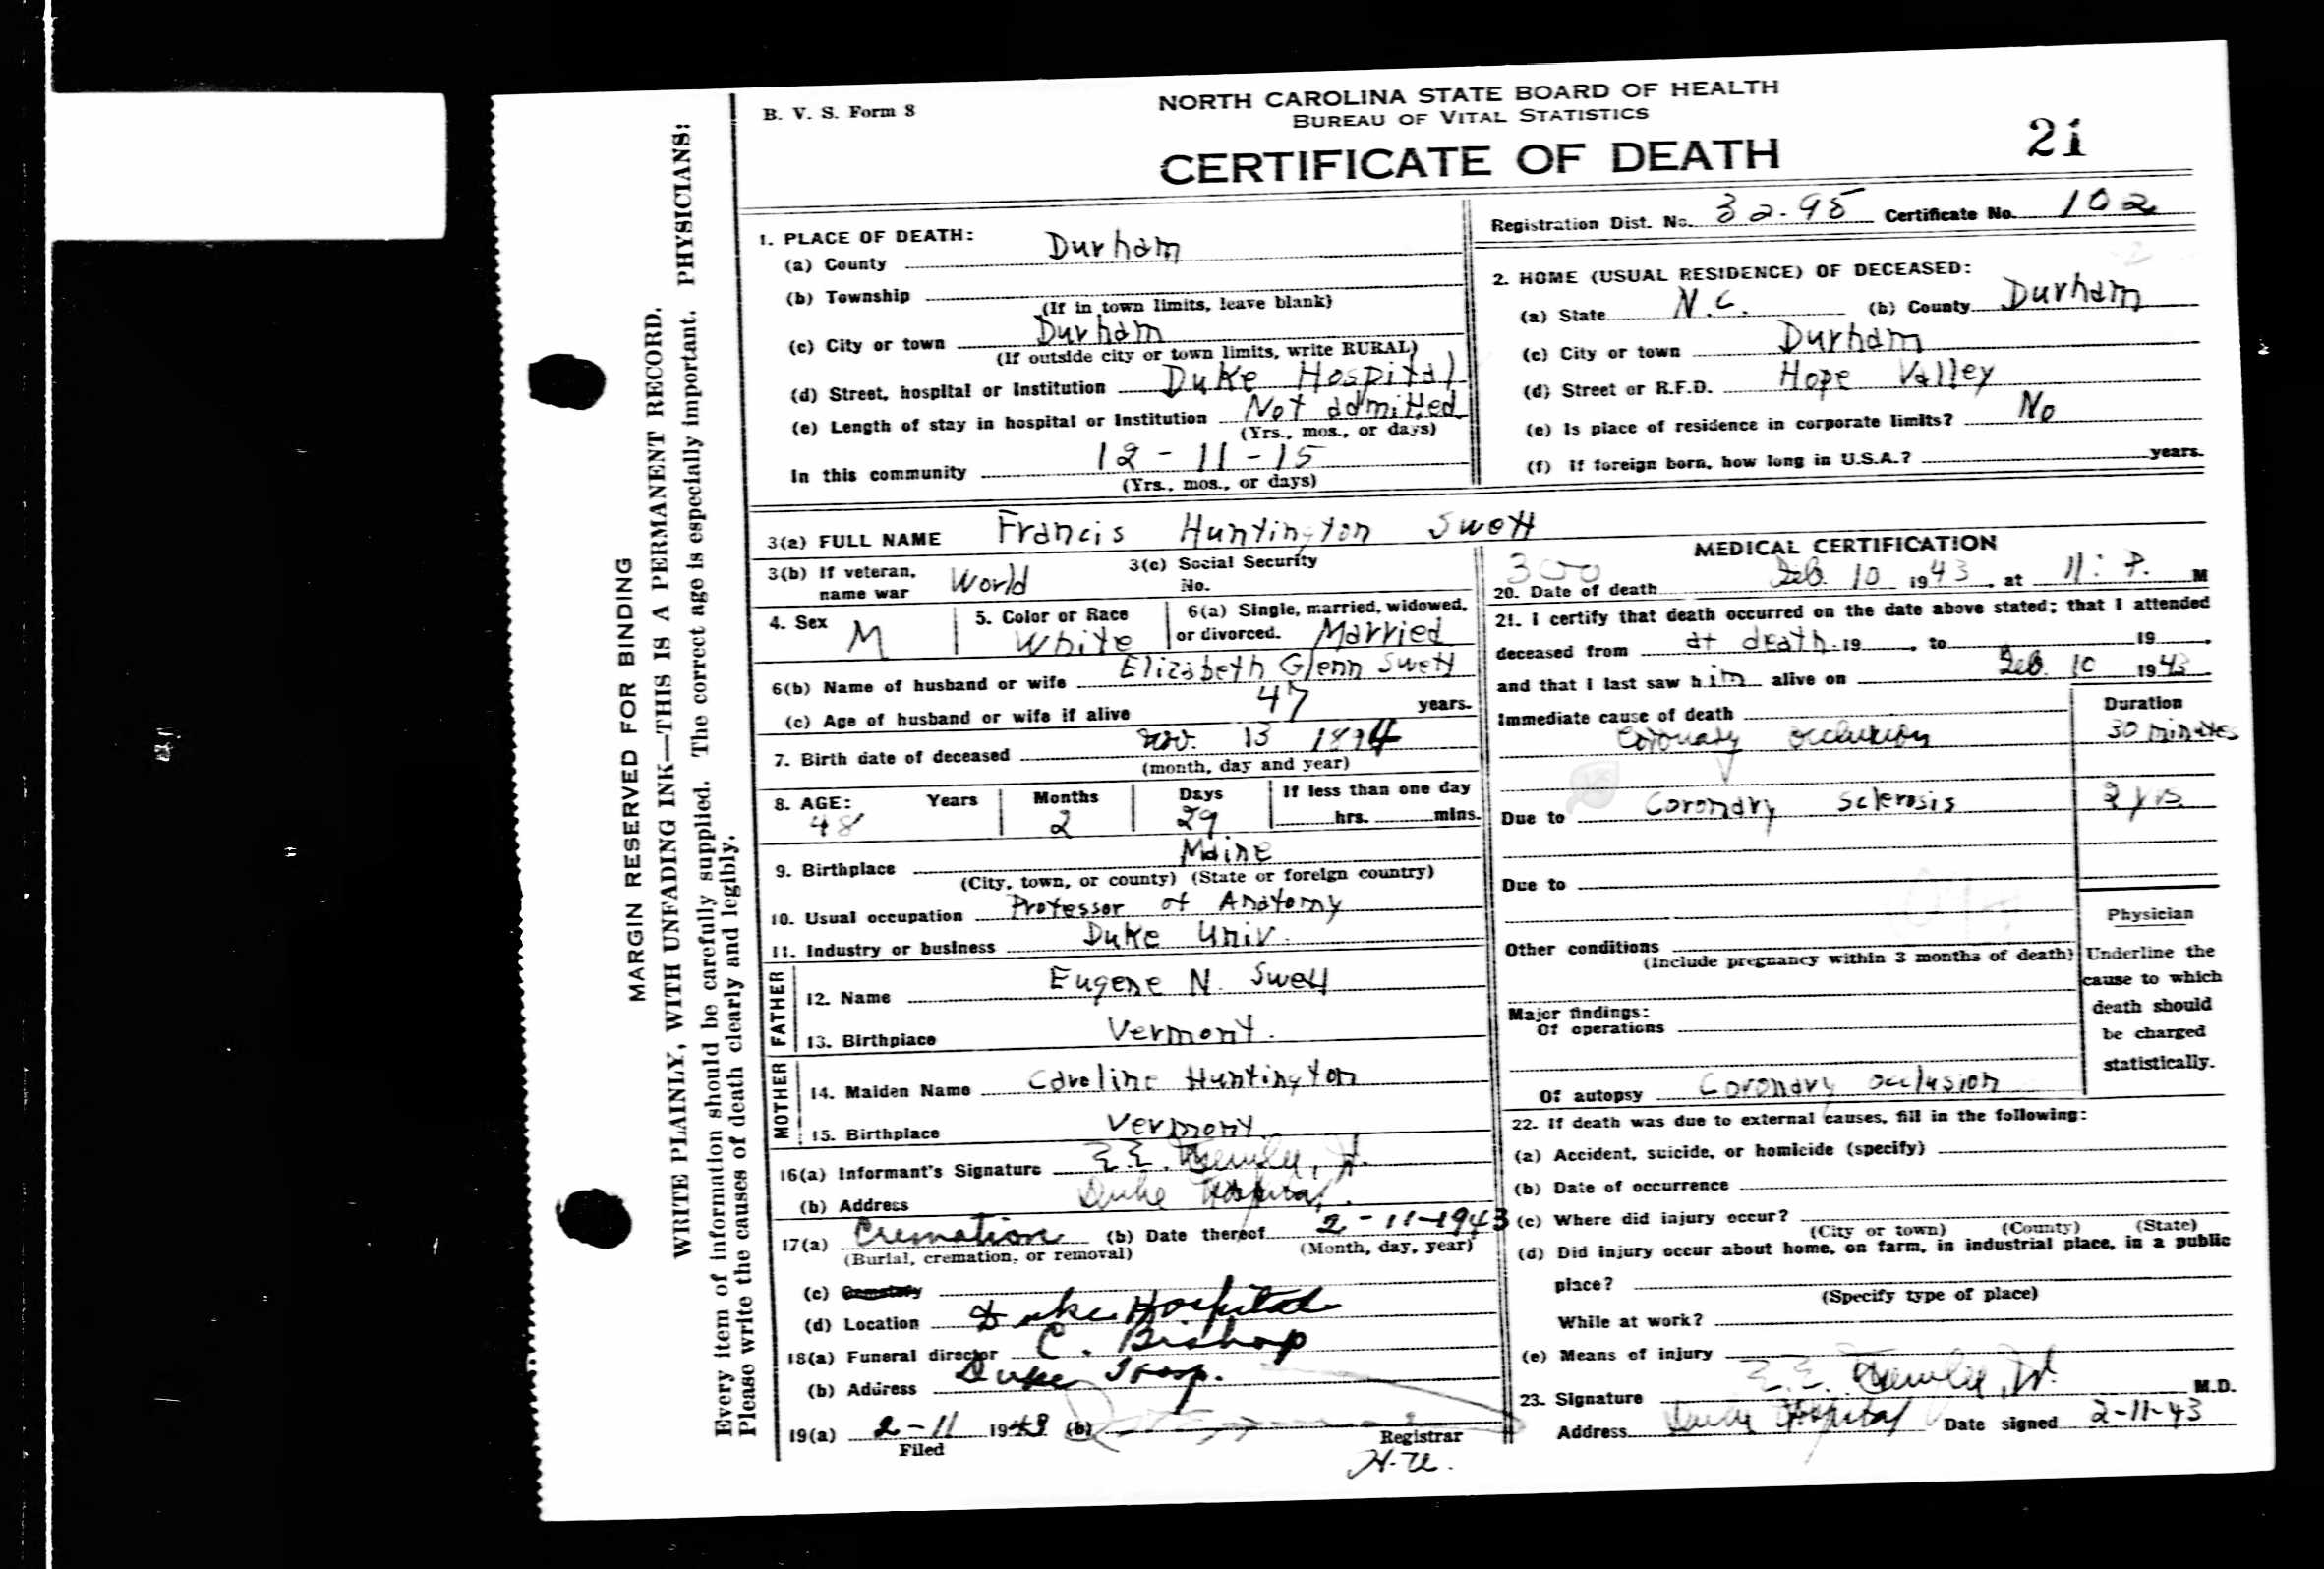 B. V. S. Form 8
NORTH CAROLINA STATE BOARD OF HEALTH
BUREAU OF VITAL STATISTICS
CERTIFICATE OF DEATH
21
MARGIN RESERVED FOR BINDING
WRITE PLAINLY, WITH UNFADING INK—THIS IS A PERMANENT RECORD.
Every item of information should be carefully supplied. The correct age is especially important. PHYSICIANS:
Please write the causes of death clearly and legibly.
Registration Dist. No. 32-95 Certificate No. 102
1. PLACE OF DEATH:
(a) County Durham
(b) Township
(If in town limits, leave blank)
(c) City or town Durham
(If outside city or town limits, write RURAL)
(d) Street, hospital or Institution Duke Hospital
(e) Length of stay in hospital or Institution Not admitted
(Yrs., mos., or days)
In this community 12-11-15
(Yrs., mos., or days)
2. HOME (USUAL RESIDENCE) OF DECEASED:
(a) State N.C. (b) County Durham
(c) City or town Durham
(d) Street or R.F.D. Hope Valley
(e) Is place of residence in corporate limits? No
(f) If foreign born, how long in U.S.A.? years.
3(a) FULL NAME Francis Huntington Swett
3(b) If veteran, name war World
3(c) Social Security No.
4. Sex M
5. Color or Race White
6(a) Single, married, widowed, or divorced. Married
6(b) Name of husband or wife Elizabeth Glenn Swett
(c) Age of husband or wife if alive 47 years.
7. Birth date of deceased Nov. 13 1894
(month, day and year)
8. AGE: Years Months Days If less than one day
48 2 29 hrs. mins.
9. Birthplace Maine
(City, town, or county) (State or foreign country)
10. Usual occupation Professor of Anatomy
11. Industry or business Duke Univ.
FATHER
12. Name Eugene N. Swett
13. Birthplace Vermont.
MOTHER
14. Maiden Name Caroline Huntington
15. Birthplace Vermont.
16(a) Informant's Signature E.E. Jr.
(b) Address Duke Hospital.
17(a) Cremation (b) Date thereof 2-11-1943
(Burial, cremation, or removal) (Month, day, year)
(c) Cemetery
(d) Location Duke Hospital
18(a) Funeral director C. Bishop
(b) Address Duke Hosp.
19(a) 2-11 1943 (b)
Filed Registrar
MEDICAL CERTIFICATION
300
20. Date of death Feb. 10 1943, at 11: P. M
21. I certify that death occurred on the date above stated; that I attended
deceased from at death 19 , to 19 .
and that I last saw him alive on Feb. 10 1943
Immediate cause of death Duration
Coronary occlusion 30 minutes
Due to Coronary sclerosis 2 yrs
Due to
Other conditions
(Include pregnancy within 3 months of death)
Major findings:
Of operations
Of autopsy Coronary occlusion
Physician
Underline the
cause to which
death should
be charged
statistically.
22. If death was due to external causes, fill in the following:
(a) Accident, suicide, or homicide (specify)
(b) Date of occurrence
(c) Where did injury occur?
(City or town) (County) (State)
(d) Did injury occur about home, on farm, in industrial place, in a public
place?
(Specify type of place)
While at work?
(e) Means of injury
23. Signature E.E. Jr. M.D.
Address Duke Hospital Date signed 2-11-43